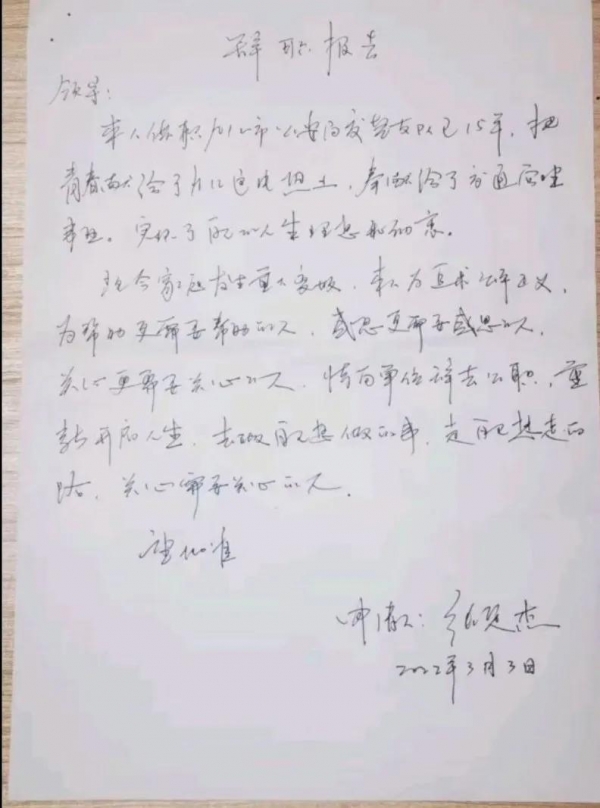 辞职报告
领导:
本人供职 市公安局交警支队已15年,把
青春献给了 这片热土,奉献给了交通管理
事业。实现了自己的人生理想和
现今家庭发生重大变故,本人为追求公平正义,
为帮助更需要帮助的人,感恩更需要感恩的人,
关心更需要关心的人,特向单位辞去公职,重
新开启人生,去做自己想做的事,走自己想走的
路,关心需要关心的人。
望批准
申请人: 杰
2022年3月3日